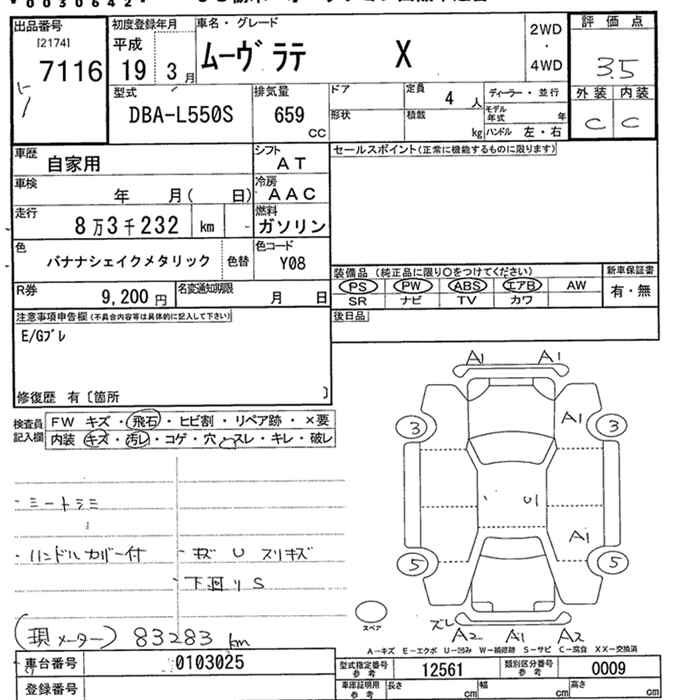 0030642
出品番号
[2174]
7116
初度登録年月
平成
19 3月
車名・グレード
ムーヴ ラテ X
2WD
・
4WD
評価点
3.5
外装 内装
C C
型式
DBA-L550S
排気量
659
CC
ドア
形状
定員
4人
積載
kg
ディーラー・並行
モデル年式 年
ハンドル 左・右
車歴
自家用
シフト
AT
車検
年 月( 日)
冷房
AAC
走行
8万3千232 km
燃料
ガソリン
色
バナナシェイクメタリック
色替
色コード
Y08
R券
9,200円
名変通知期限
月 日
セールスポイント(正常に機能するものに限ります)
装備品(純正品に限り○をつけてください)
PS PW ABS エアB AW
SR ナビ TV カワ
新車保証書
有・無
後日品
注意事項申告欄(不具合内容等は具体的に記入して下さい)
E/Gブレ
修復歴 有〔箇所 〕
検査員記入欄
FW キズ・飛石・ヒビ割・リペア跡・×要
内装 キズ・汚レ・コゲ・穴・スレ・キレ・破レ
・シートシミ
・ハンドルカバー付
・キズ U スリキズ
・下回りS
(現メーター) 83283 km
A1 A1
A1
3 3
U1
A1
5 5
スペア
ズレ
A2 A1 A2
A-キズ E-エクボ U-凹み W-補修跡 S-サビ C-腐食 XX-交換済
車台番号
0103025
登録番号
型式指定番号
参考
12561
類別区分番号
参考
0009
車庫証明用
参考
長さ cm
幅 cm
高さ cm